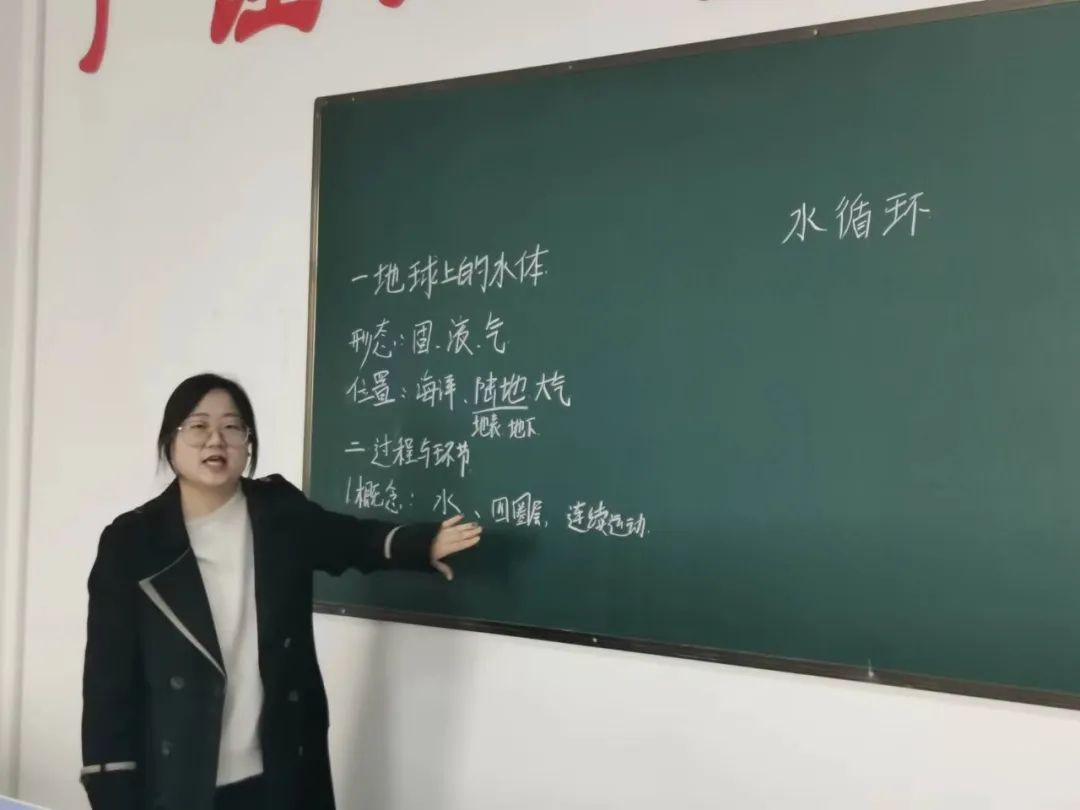 水循环
一地球上的水体
形态:固、液、气
位置:海洋、陆地 大气
地表 地下
二 过程与环节
1概念: 水、四圈层, 连续运动.